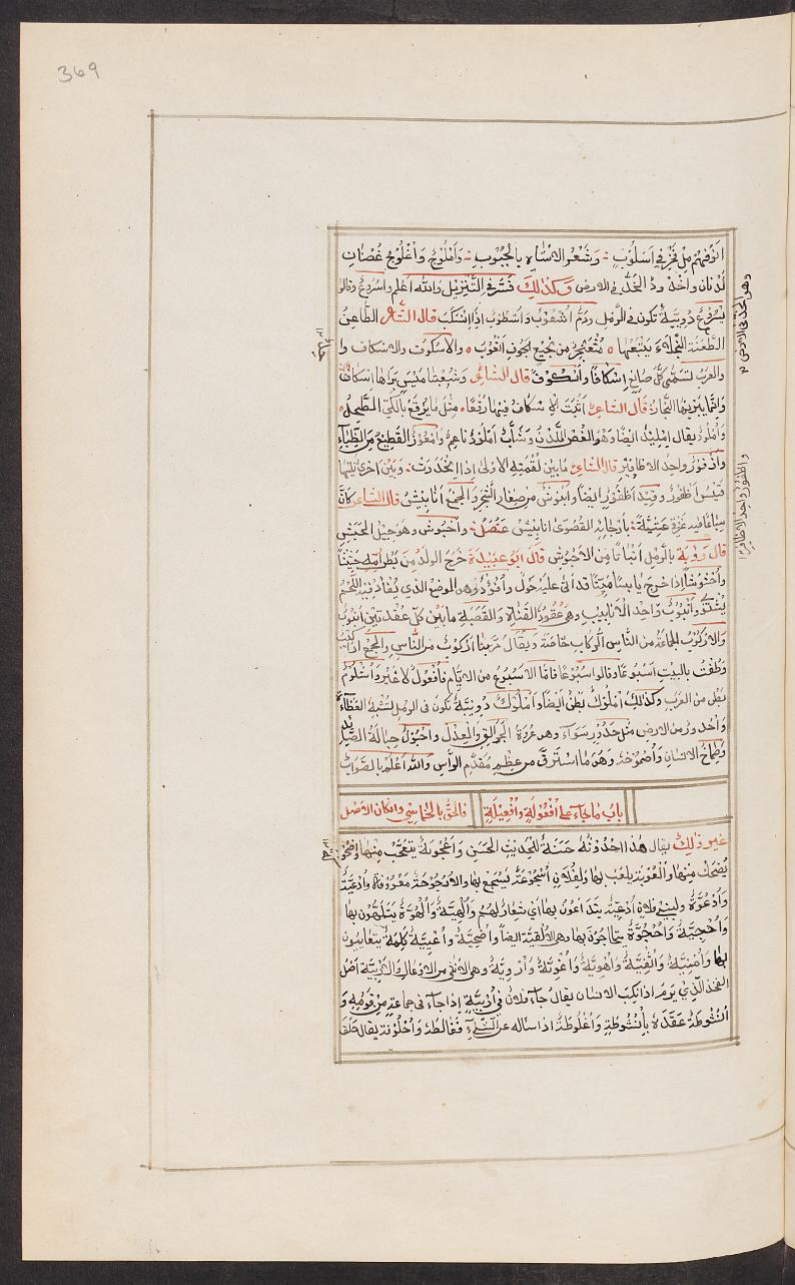 369
انوفهم مل فخر في اسلوب وشعر الاستاه بالجبوب واملوج واغلوج غصنان
لدنان واخدود الخد في الارض وكذلك فسر في التنزيل والله اعلم واسروع وقالوا
يسروع دويبة تكون في الرمل ودم اثعوب واسطوب اذا انسكب قال الشاعر الطاعن
الطعنة النجلاء يتبعها مثعنجر من نجيع الجوف اثعوب والاسكوف والاسكاف وا
والعرب تسمي كل صانع اسكافا واسكوف قال الشاعر وشعبتا ميس براها اسكاف
وانما يبريها النجار قال الشاعر فيها رقعا مثل ما يرقع بالكي الطحل
واملود يقال امليد ايضا وهو الغصن اللدن وشاب املود ناعم وامعوز القطيع من الظباء
واظفور واحد الاظافير قال الشاعر ما بين لقمته الاولى اذا انحدرت وبين اخرى تليها
قيس اظفور وقيد اظفور ايضا وانبوش من صغار الشجر والجمع انابيش قال الشاعر كان
سباعا فيه غرقى عشية بارجائه القصوى انابيش عنصل واحبوش وهو جيل الحبش
قال رؤبة بالرمل انباتا من الاحبوش قال ابو عبيدة خرج الولد من بطن امه حشيشا
واحشوشا اذا خرج يابسا ميتا قد اتى عليه حول وافؤود وهو الموضع الذي يفأد فيه اللحم
يشتوى وانبوب واحد الانابيب وهو عقود القناة والقصبة ما بين كل عقدتين انبوب
والاركوب الجماعة من الناس الركاب خاصة ويقال مر بنا اركوب من الناس والجمع اراكيب
وطفت بالبيت اسبوعا وقالوا سبوعا فاما الاسبوع من الايام فافعول لا غير واسلوم
بطن من العرب وكذلك املوك بطن ايضا واملوك دويبة تكون في الرمل تشبه العظاءة
واحدور من الارض مثل حدور سواء وهي عروة الجوالق والعدل واحبول حبالة الصائد
وصماخ الانسان واصموخه وهو ما استرق من عظم مقدم الراس والله اعلم بالصواب
باب ما جاء على افعولة وافعيلة فالحق بالخماسي وان كان الاصل
غير ذلك يقال هذا احدوثة حسنة للحديث الحسن واعجوبة يتعجب منها واضحوكة
يضحك منها والعوبة يلعب بها ولفلان اسجوعة يسجع بها والارجوحة معروفة وادعية
وادعوة وبني فلان ادعية يتداعون بها اي شعار لهم والهية والهوة يتلهون بها
واحجية واحجوة يتحاجون بها وهي الالقية ايضا واضحية واعيية كلمة يتعايون
بها وامنية واثفية واهوية واغوية واروية وهي الانثى من الاوعال والاربية اصل
الفخذ الذي يرم اذا نكب الانسان يقال جاء فلان في اربية اذا جاء في جماعة من قومه و
انشوطة عقده بانشوطة واغلوطة اذا ساله عن الشيء فغالطه واحلوفة يقال حلف
وهو الخد في الارض
واظفور واحد الاظافير